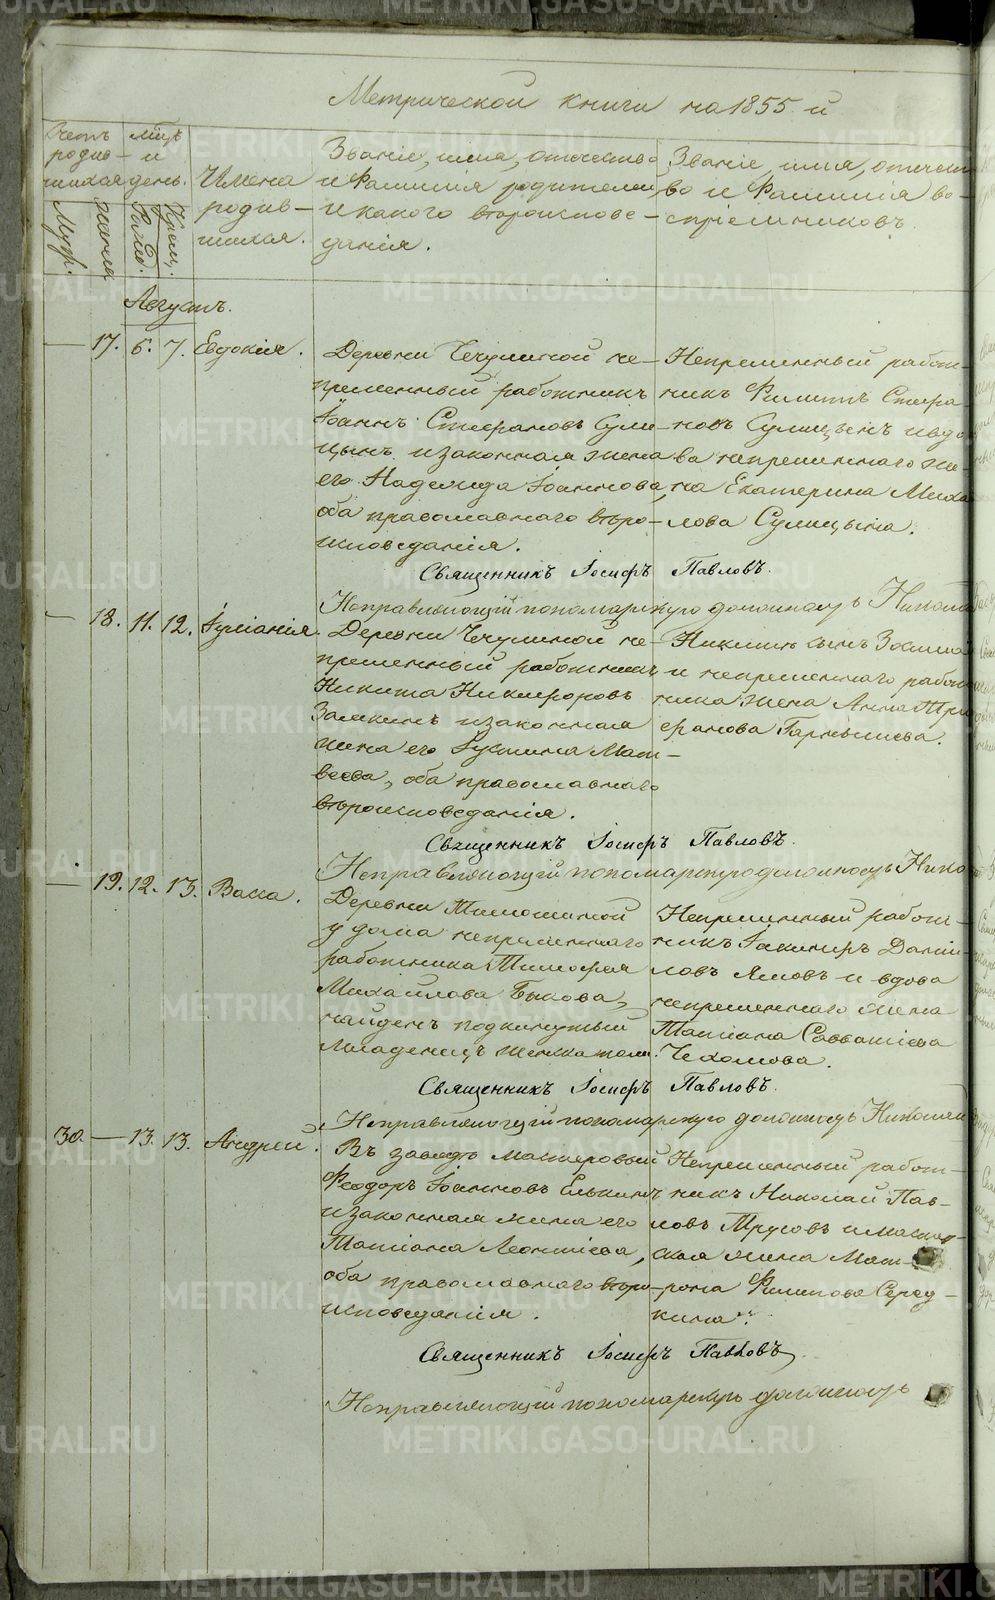 Метрической книги на 1855 й
Счетъ родив-шихся
Муж.
Женска
Мѣц. и день.
Рожд.
Крещ.
Имена родив-шихся.
Званіе, имя, отчество
и Фамилія родителей,
и какого вѣроиспове-
данія.
Званіе, имя, отчест
во и Фамилія во-
спріемниковъ.
Августъ.
17. 6. 7. Евдокія.
Деревни Чечулиной не-
премѣнный работникъ
Іоаннъ Стефановъ Сули-
цынъ и законная жена
его Надежда Іоаннова,
оба православнаго вѣро-
исповѣданія.
Непремѣнный работ-
никъ Филипъ Стефа
новъ Сулицынъ и вдо
ва непремѣннаго же-
на Екатерина Миха
лова Сулицына.
Священникъ Іосифъ Павловъ.
Исправляющій пономарскую должность Никола
18. 11. 12. Іуліанія.
Деревни Чечулиной не-
премѣнный работникъ
Никита Никифоровъ
Замкинъ и законная
жена его Іустина Мат-
веева, оба православнаго
вѣроисповѣданія.
Никитин сынъ Зосима
и непремѣннаго работ
ника жена Анна Три
фанова Барнышева.
Священникъ Іосифъ Павловъ.
Исправляющій пономарскую должность Нико
19. 12. 13. Васса.
Деревни Тимошиной
у дома непремѣннаго
работника Тимофея
Михайлова Быкова,
найденъ подкинутый
младенецъ женска пола.
Непремѣнный работ-
никъ Іакинфъ Данiи-
ловъ Ямовъ и вдова
непремѣннаго жена
Татіана Савватіева
Чехомова.
Священникъ Іосифъ Павловъ.
Исправляющій пономарскую должность Николай
30. 13. 13. Андрей.
Въ заводѣ мастеровый
Феодоръ Іоанновъ Елькинъ
и законная жена его
Татіана Леонтіева,
оба православнаго вѣро-
исповѣданія.
Непремѣнный работ-
никъ Николай Пав-
ловъ Трусовъ и мастер-
ская жена Мат-
рона Филипова Серед-
кина.
Священникъ Іосифъ Павловъ.
Исправляющій пономарскую должность
METRIKI.GASO-URAL.RU